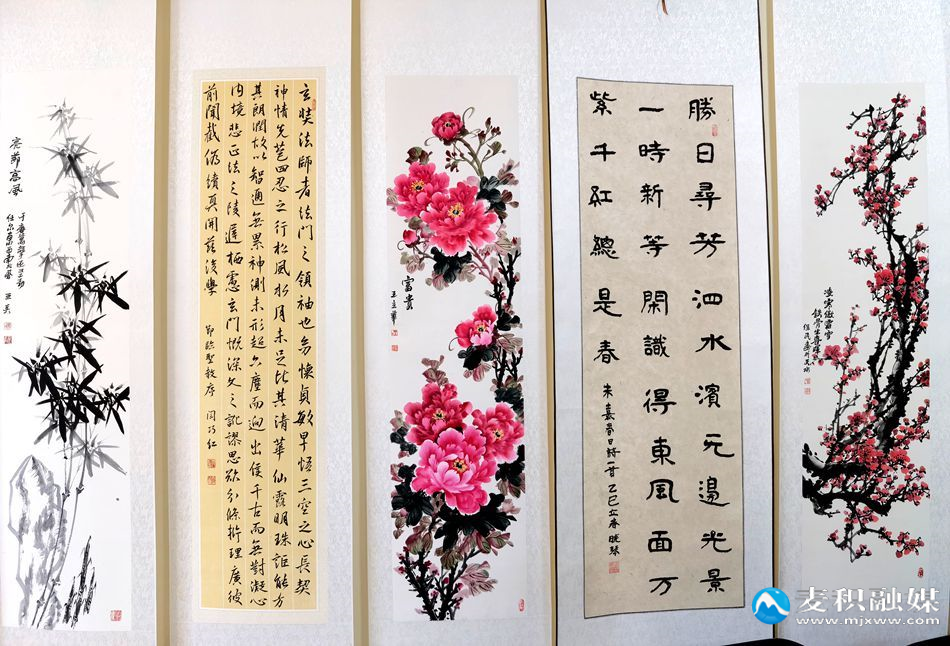 亮節高風
玄奘法師者法門之領袖也幼懷貞敏早悟三空之心長契
神情先苞四忍之行松風水月未足比其清華仙露明珠詎能方
其朗潤故以智通無累神測未形超六塵而迥出隻千古而無對凝心
内境悲正法之陵遲栖慮玄門慨深文之訛謬思欲分條析理廣彼
前聞截偽續真開茲後學
節臨聖教序
富貴
勝日尋芳泗水濱无邊光景
一時新等閑識得東風面万
紫千紅總是春
朱熹春日詩一首乙巳立春
凌寒傲霜雪
麦积融媒
www.mjxww.com